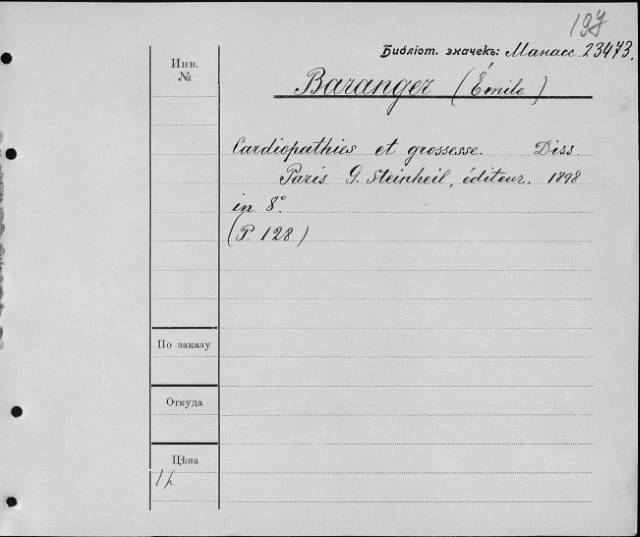 197
Библіот. значекъ: Манасс. 23473.
Инв.
№
Baranger (Émile)
Cardiopathies et grossesse. Diss.
Paris G. Steinheil, éditeur. 1898
in 8°.
(P. 128)
По заказу
Откуда
Цѣна
1 р